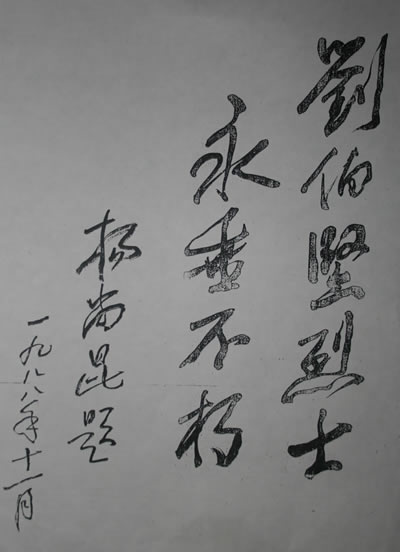 劉伯堅烈士
永垂不朽
杨尚昆题
一九八八年十一月